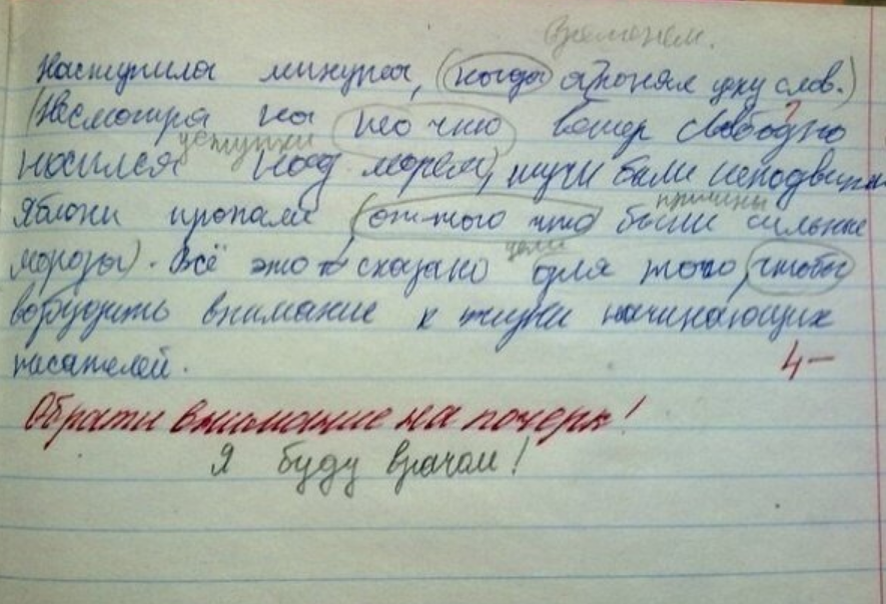 Временем.
Наступила минута, (когда я понял цену слов.)
(Несмотря на то что ветер свободно
уступки
носился над морем), тучи были неподвижн
причины
Яблоки пропали (от того что были сильные
цели
морозы). Всё это сказано для того, чтобы
возбудить внимание к жизни начинающих
писателей.
4-
Обрати внимание на почерк!
Я буду врачом!